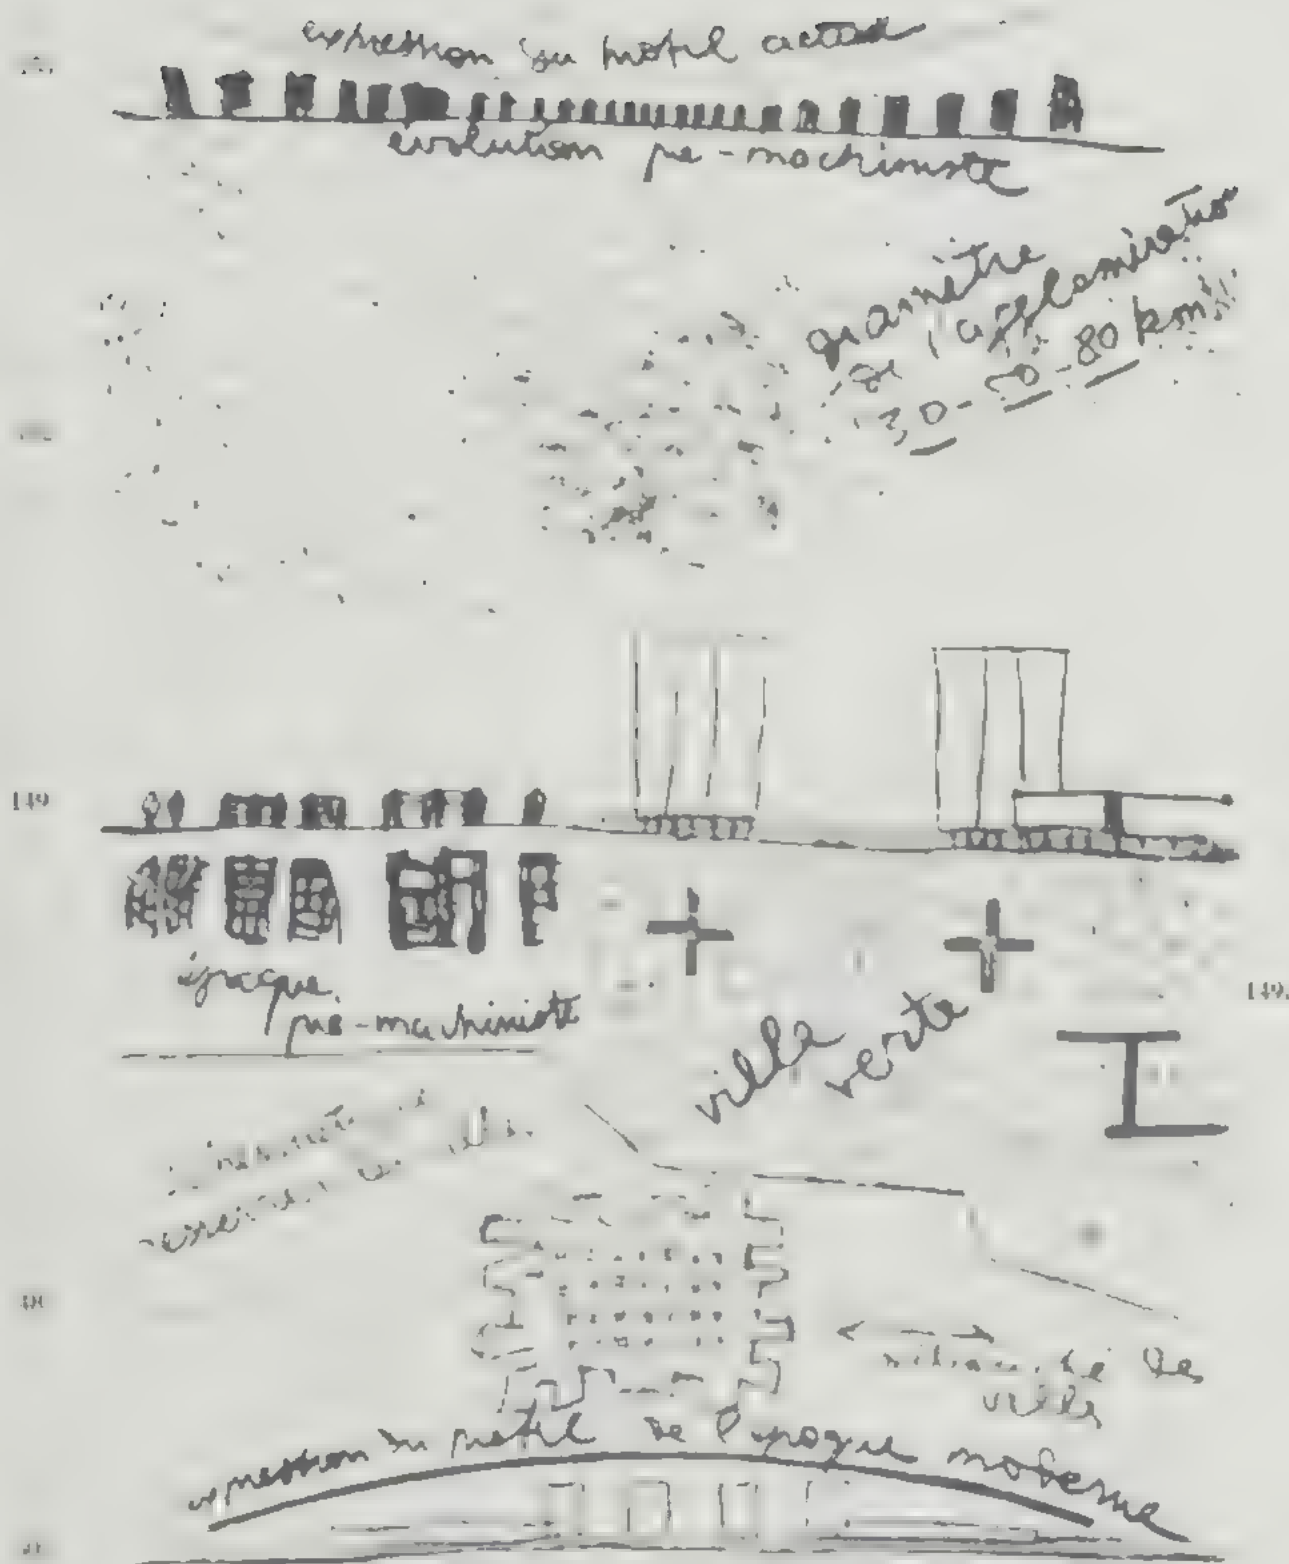 expression du profil actuel
évolution pré-machiniste
diamètre
de l'agglomération
30-50-80 km!!
149
époque
pré-machiniste
149
ville
verte
de
ville
expression du profil de l'époque moderne